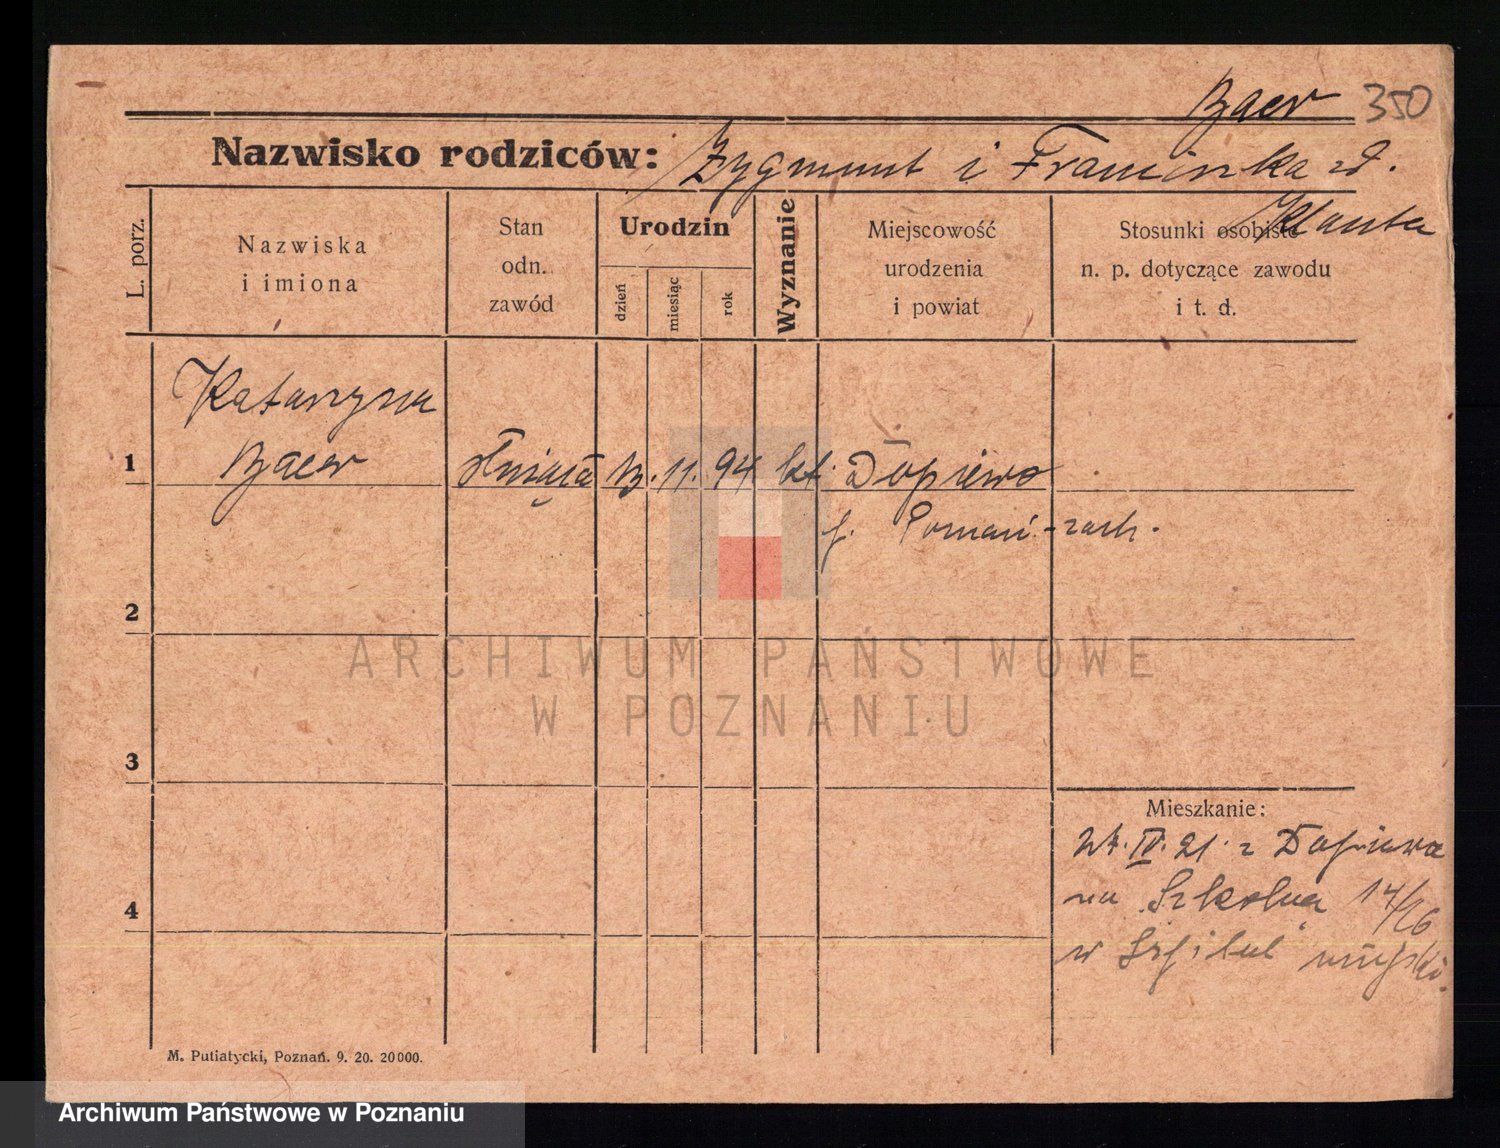 Baer 350
Nazwisko rodziców: Zygmunt i Franciszka zd.
Klauta
L. porz.
Nazwiska
i imiona
Stan
odn.
zawód
Urodzin
dzień
miesiąc
rok
Wyznanie
Miejscowość
urodzenia
i powiat
Stosunki osobiste
n. p. dotyczące zawodu
i t. d.
Katarzyna
1 Baer służąca 13. 11. 94 kt. Dopiewo
p. Poznań-zach.
2
3
4
Mieszkanie:
IV. 21. z Dopiewa
na Szkolna 14/26
w Szpital miejski.
M. Putiatycki, Poznań. 9. 20. 20000.
ARCHIWUM PAŃSTWOWE
W POZNANIU
Archiwum Państwowe w Poznaniu